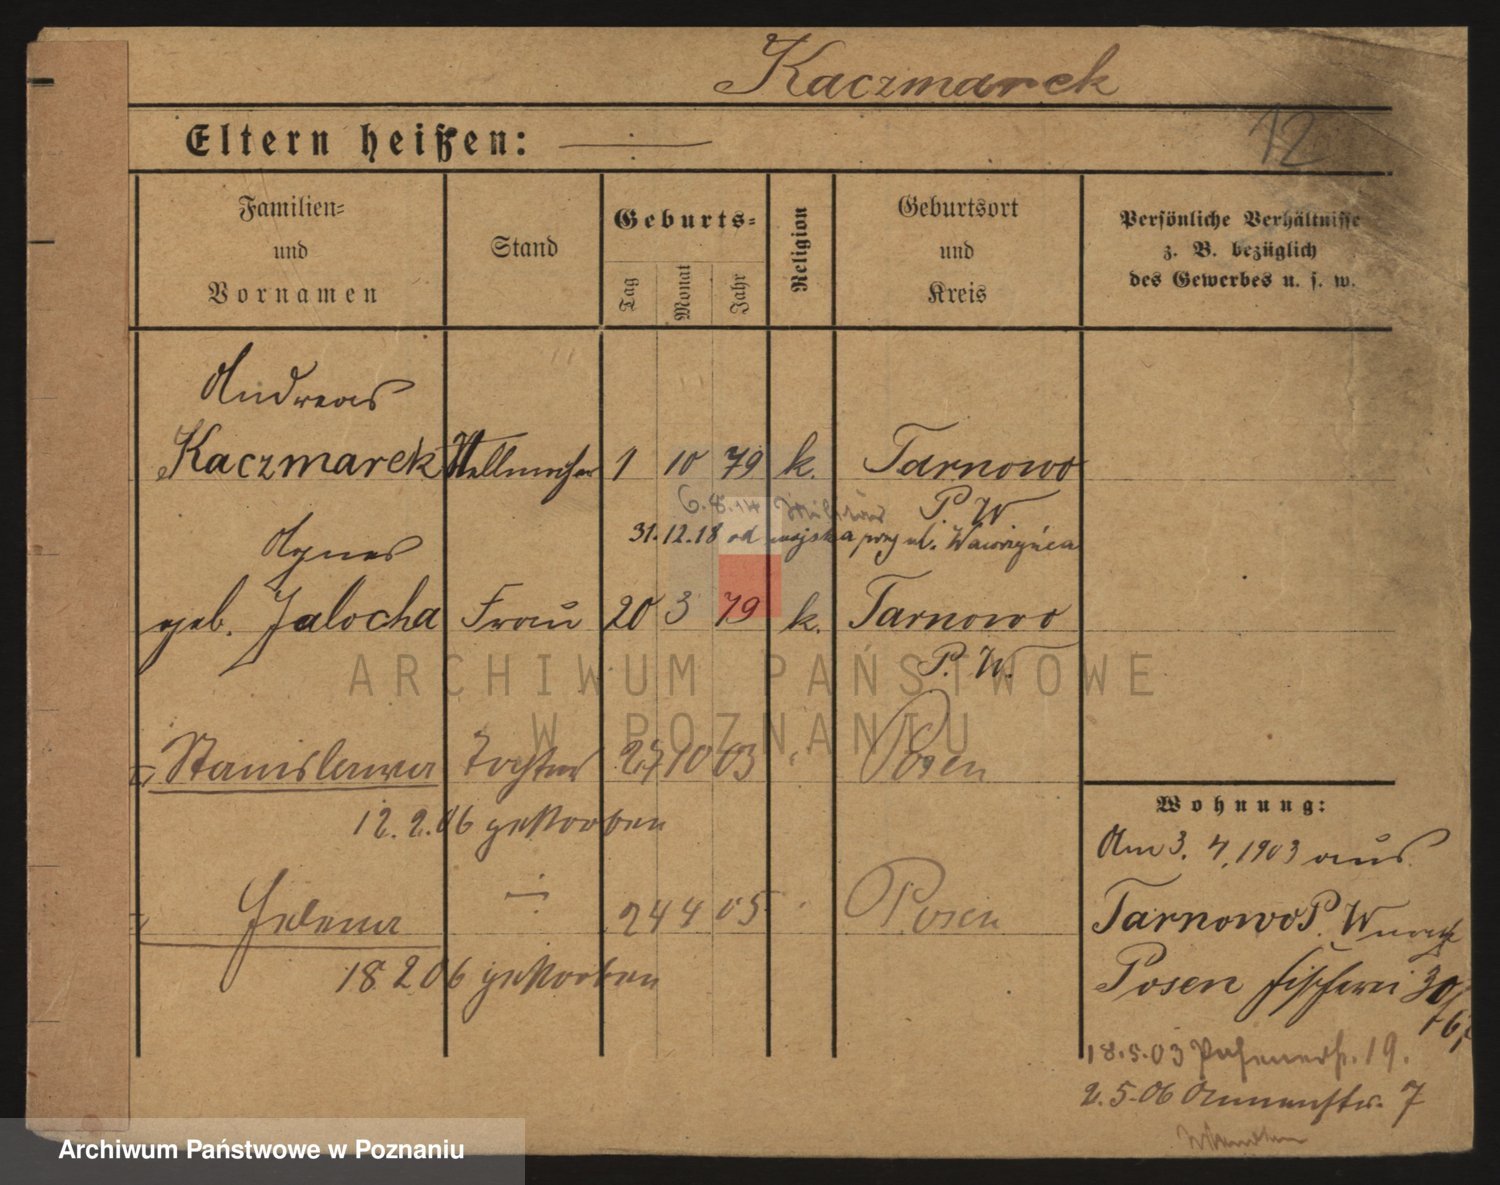 Kaczmarek
12
Eltern heißen: —
Familien-
und
Vornamen
Stand
Geburts-
Tag
Monat
Jahr
Religion
Geburtsort
und
Kreis
Persönliche Verhältnisse
z. B. bezüglich
des Gewerbes u. s. w.
Andreas
Kaczmarek Stellmacher 1 10 79 k. Tarnowo
P. W
6.8.14 Militär
31.12.18 od wojska przy ul. Wawrzyńca
Agnes
geb. Jalocha Frau 20 3 79 k. Tarnowo
P. W.
Stanislawa Tochter 27 10 03 Posen
12.2.06 gestorben
Helena 24 4 05 Posen
18 2 06 gestorben
Wohnung:
Am 3. 4. 1903 aus
Tarnowo P. W nach
Posen Fischerei 30
18.5.03 19.
2.5.06 Annenstr. 7
ARCHIWUM PAŃSTWOWE
W POZNANIU
Archiwum Państwowe w Poznaniu